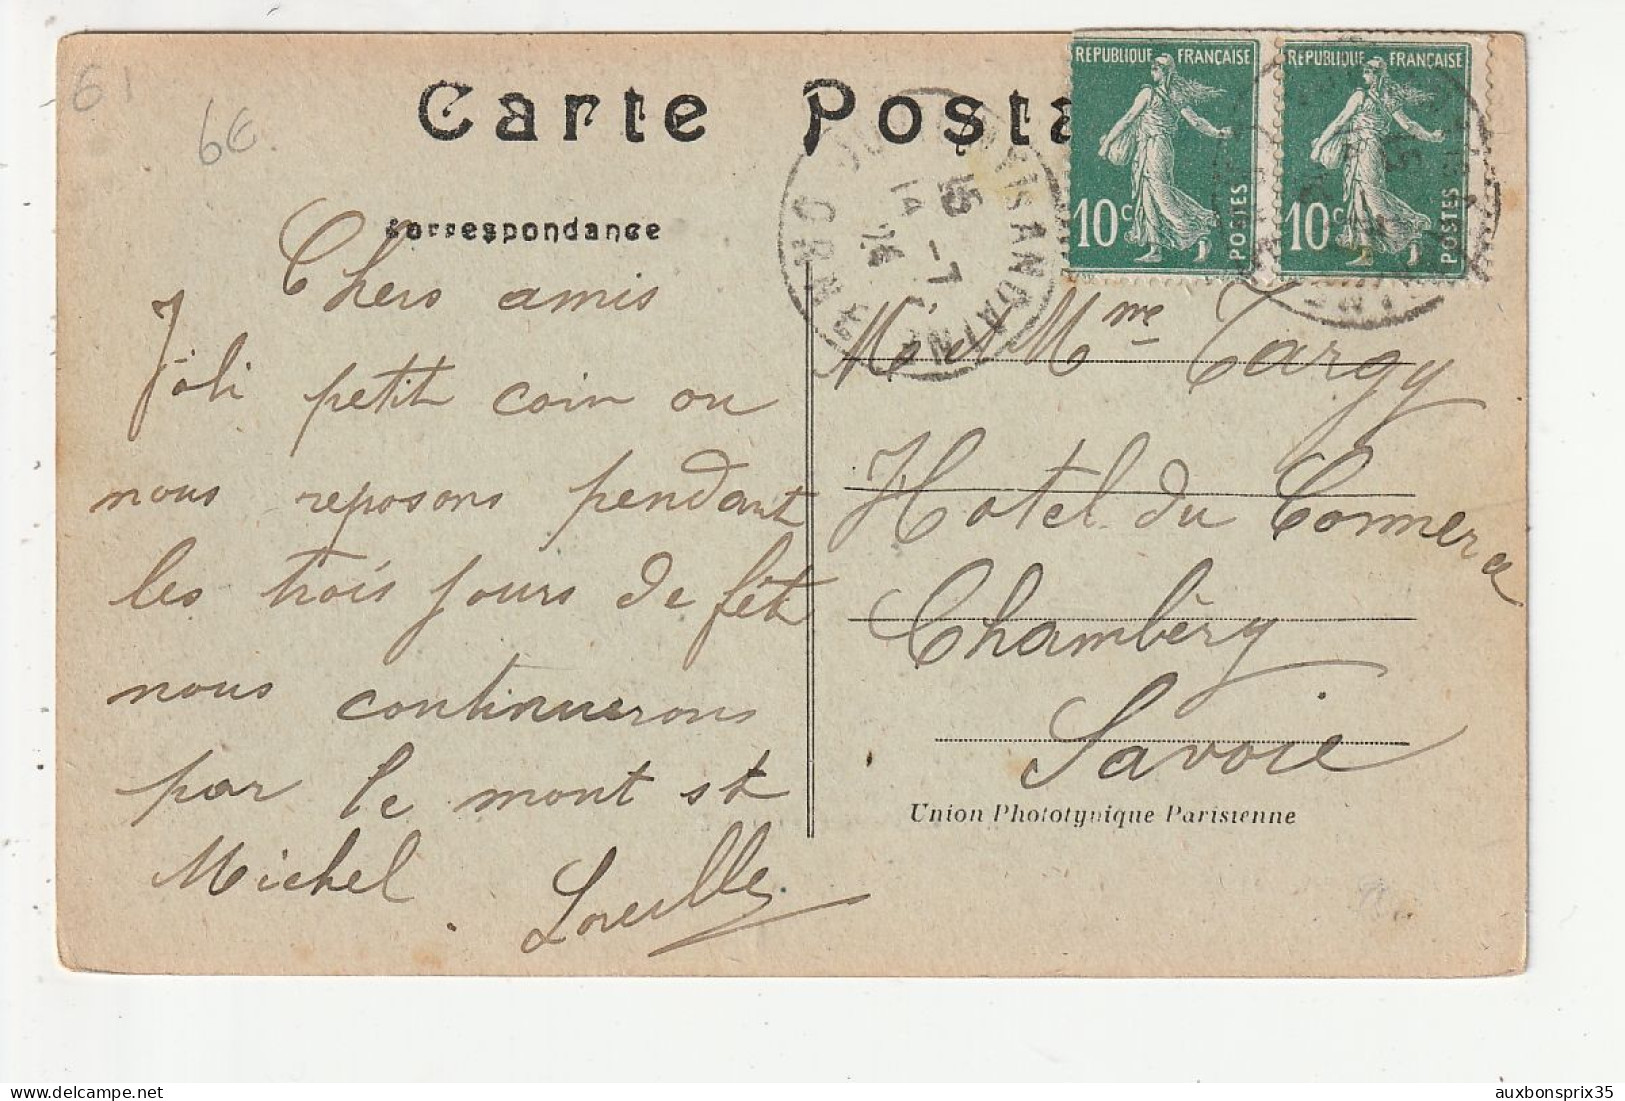 61
6€
Carte Posta
REPUBLIQUE FRANÇAISE
10c
POSTES
REPUBLIQUE FRANÇAISE
10c
POSTES
15
14 -7
ORNE
Correspondance
Chers amis
Joli petit coin ou
nous reposons pendant
les trois jours de fête
nous continuerons
par le mont st
Michel.
Mr et Mme Targy
Hotel du Commerce
Chambèry
Savoie
Union Phototypique Parisienne
auxbonsprix35